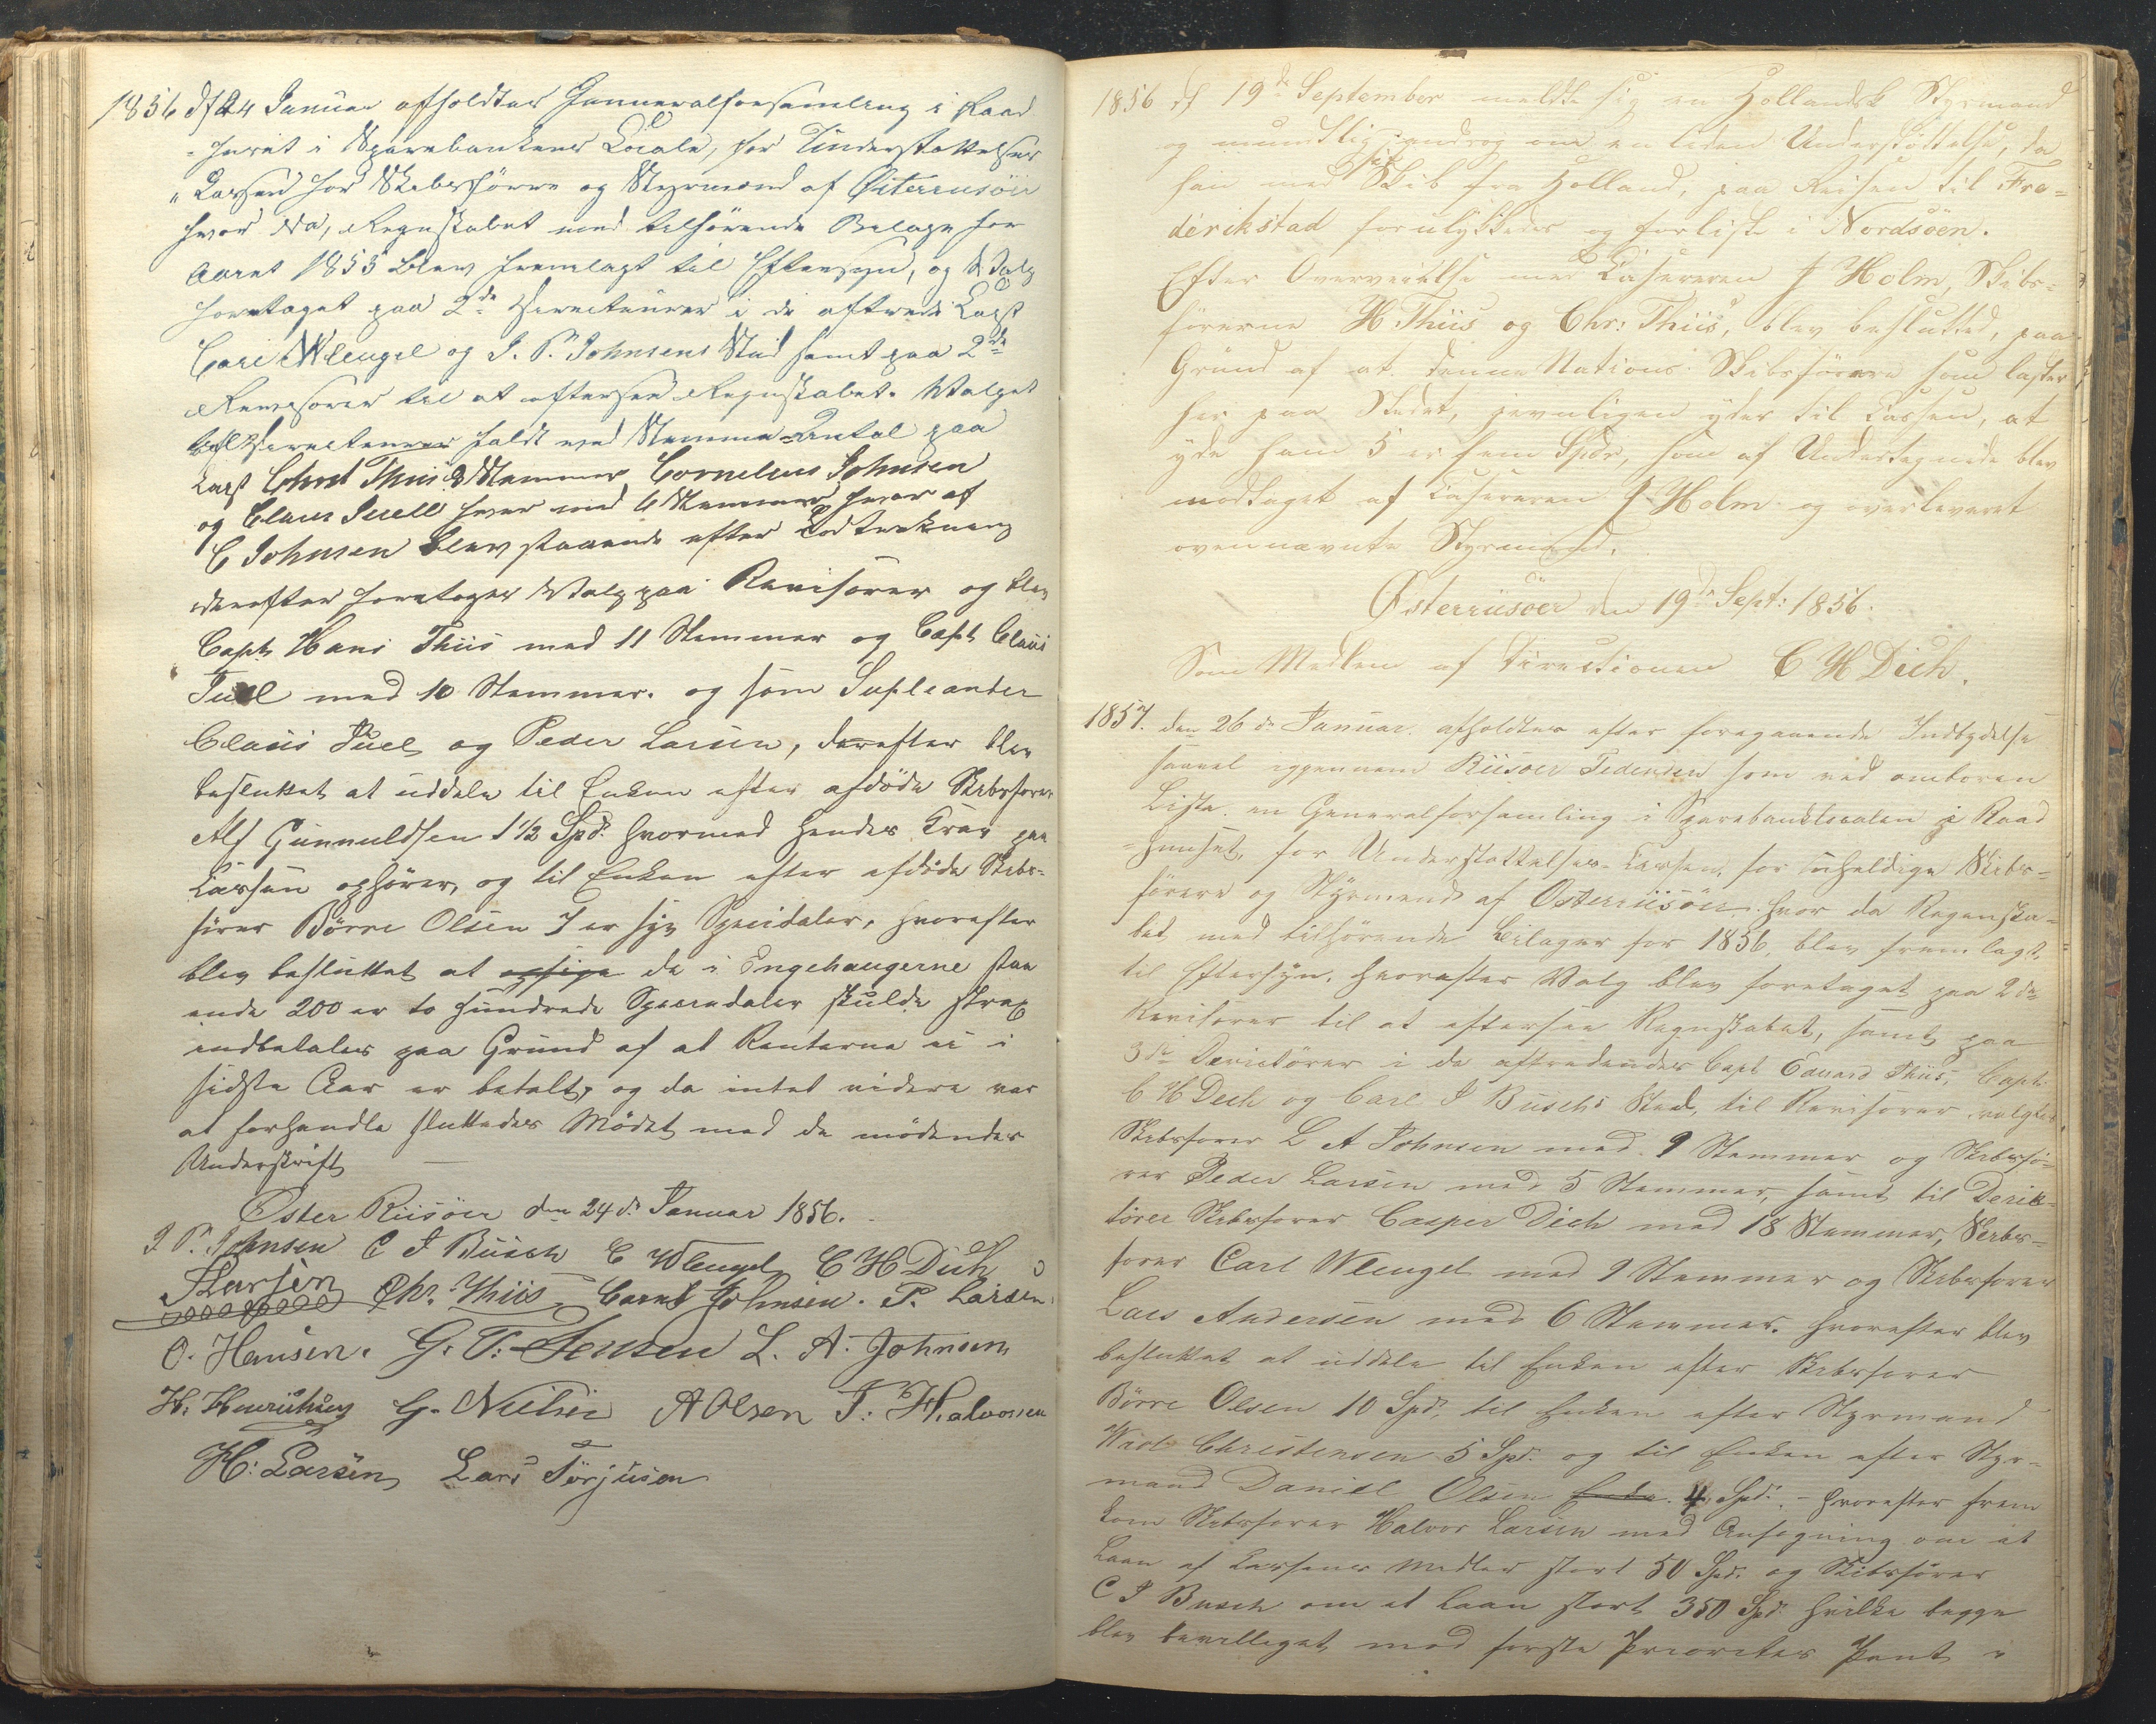 1856 d 24 Januar afholdtes Genneralforsamling i Raad
-huset i Sparebankens Locale, for Understøttelses
"Cassen for Skibsförere og Styrmænd af Österrusöer
hvor da, Regnskabet med tilhörende Belage for
Aaret 1855 blev fremlagt til Eftersyn, og Valg
foretaget paa 2de Directeurer i de aftrædte Capt
Carl Wleugel og J. P. Johnsens Sted samt paa 2de
Revisorer til at eftersee Regnskabet. Valget
Directeurer faldt med Stemme-Antal paa
Capt Christ Thiis 8 Stemmer Cornelius Johnsen
og Claus Juell hver med 6 Stemmer hvor af
C Johnsen blev staaende efter Lodtrækning
derefter foretoges Valg paa Revisorer og blev
Capt. Hans Thiis med 11 Stemmer og Capt Claus
Juel med 10 Stemmer. og som Supleanter
Claus Juel og Peder Larsen, derefter blev
besluttet at uddele til Enken efter afdöde Skibsfører
Alf Gunnuldsen 1 1/2 Spd. hvormed hendes Krav paa
Cassen ophörer, og til Enken efter afdöde Skibs-
förer Börre Olsen 7 er syv Speciedaler, hvorefter
blev besluttet at opsige de i Engehaugerne staa
ende 200 er to hundrede Speciedaler skulde strax
indbetales paa Grund af at Renterne ei i
sidste Aar er betalt, og da intet videre var
at forhandle sluttedes Mödet med de mödendes
Underskrift —
Öster Riisöer den 24de Januar 1856.
J P. Johnsen C J Busch C Wleugel C H Dich
J Larsen Chr. Thiis Corns Johnsen. P. Larsen
O. Hansen. G. T. Jensen L. A. Johnsen
H. Henrichsen G. Nielsen A Olsen T. Halvorsen
H: Larsen Lars Törjusen
1856 d 19de September meldte sig en Hollandsk Styrmand
og mundtlig androg om en liden Understöttelse, da
han med sit Skib fra Holland, paa Reisen til Fre=
derikstad forulykkedes og forliste i Nordsöen.
Efter Overveielse med Kassereren J Holm, Skibs=
förerne H. Thiis og Chr: Thiis, blev besluttet, paa
Grund af at denne Nations Skibsförere som laster
her paa Stedet, jevnligen yder til Cassen, at
yde ham 5 er fem Spdr, som af Undertegnede blev
modtaget af Kassereren J Holm og overleveret
ovennævnte Styrmand.
Österriisöer den 19de Sept: 1856.
Som Medlem af Directionen C H Dich.
1857. den 26de Januar. afholdtes efter foregaaende Indbydelse
saavel igjennem Riisöer Tidende som ved omboren
Liste. en Generalforsamling i Sparebanklocalen i Raad
-huuset, for Understøttelses-Cassen, for uheldige Skibs-
förere og Styrmænd af Österriisöer. hvor da Regnska-
bet med tilhörende Bilager for 1856, blev fremlagt,
til Eftersyn. hvorefter Valg blev foretaget paa 2de
Revisorer til at eftersee Regnskabet, samt paa
3de Derictörer i de aftrædendes Capt Edvard Thiis, Capt:
C H Dich og Carl J Buschs Sted, til Revisorer valgtes
Skibsforer L A Johnsen med 9 Stemmer og Skibsfö-
rer Peder Larsen med 5 Stemmer, samt til Derik-
törer Skibsforer Casper Dich med 18 Stemmer, Skibs-
forer Carl Wleugel med 9 Stemmer og Skibsforer
Lars Andersen med 6 Stemmer. hvorefter blev
besluttet at uddele til Enken efter Skibsforer
Börre Olsen 10 Spd, til Enken efter Styrmand
Christensen 5 Spd. og til Enken efter Styr-
mand Daniel Olsen Enke. 4 Spd. - hvorefter frem
kom Skibsforer Halvor Larsen med Ansøgning om at
Laan af Cassens Midler stort 50 Spd. og Skibsförer
C J Busch om et Laan stort 350 Spd. hvilke begge
blev bevilliget mod første Prioritets Pant i